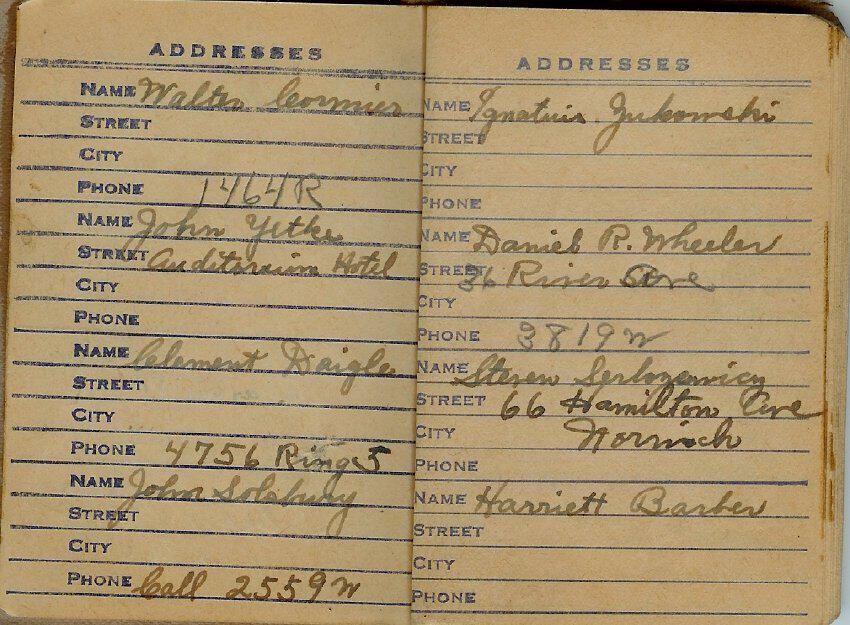 ADDRESSES
NAME Walter Cormier
STREET
CITY
PHONE 1464R
NAME John Yetke
STREET Auditorium Hotel
CITY
PHONE
NAME Clement Daigle
STREET
CITY
PHONE 4756 Ring 5
NAME John Solsbury
STREET
CITY
PHONE Call 2559 W
ADDRESSES
NAME Ignatuis Zukowski
STREET
CITY
PHONE
NAME Daniel R. Wheeler
STREET 36 River Ave
CITY
PHONE 3819 W
NAME Steven
STREET 66 Hamilton Ave
CITY Norwich
PHONE
NAME Harriett Barber
STREET
CITY
PHONE